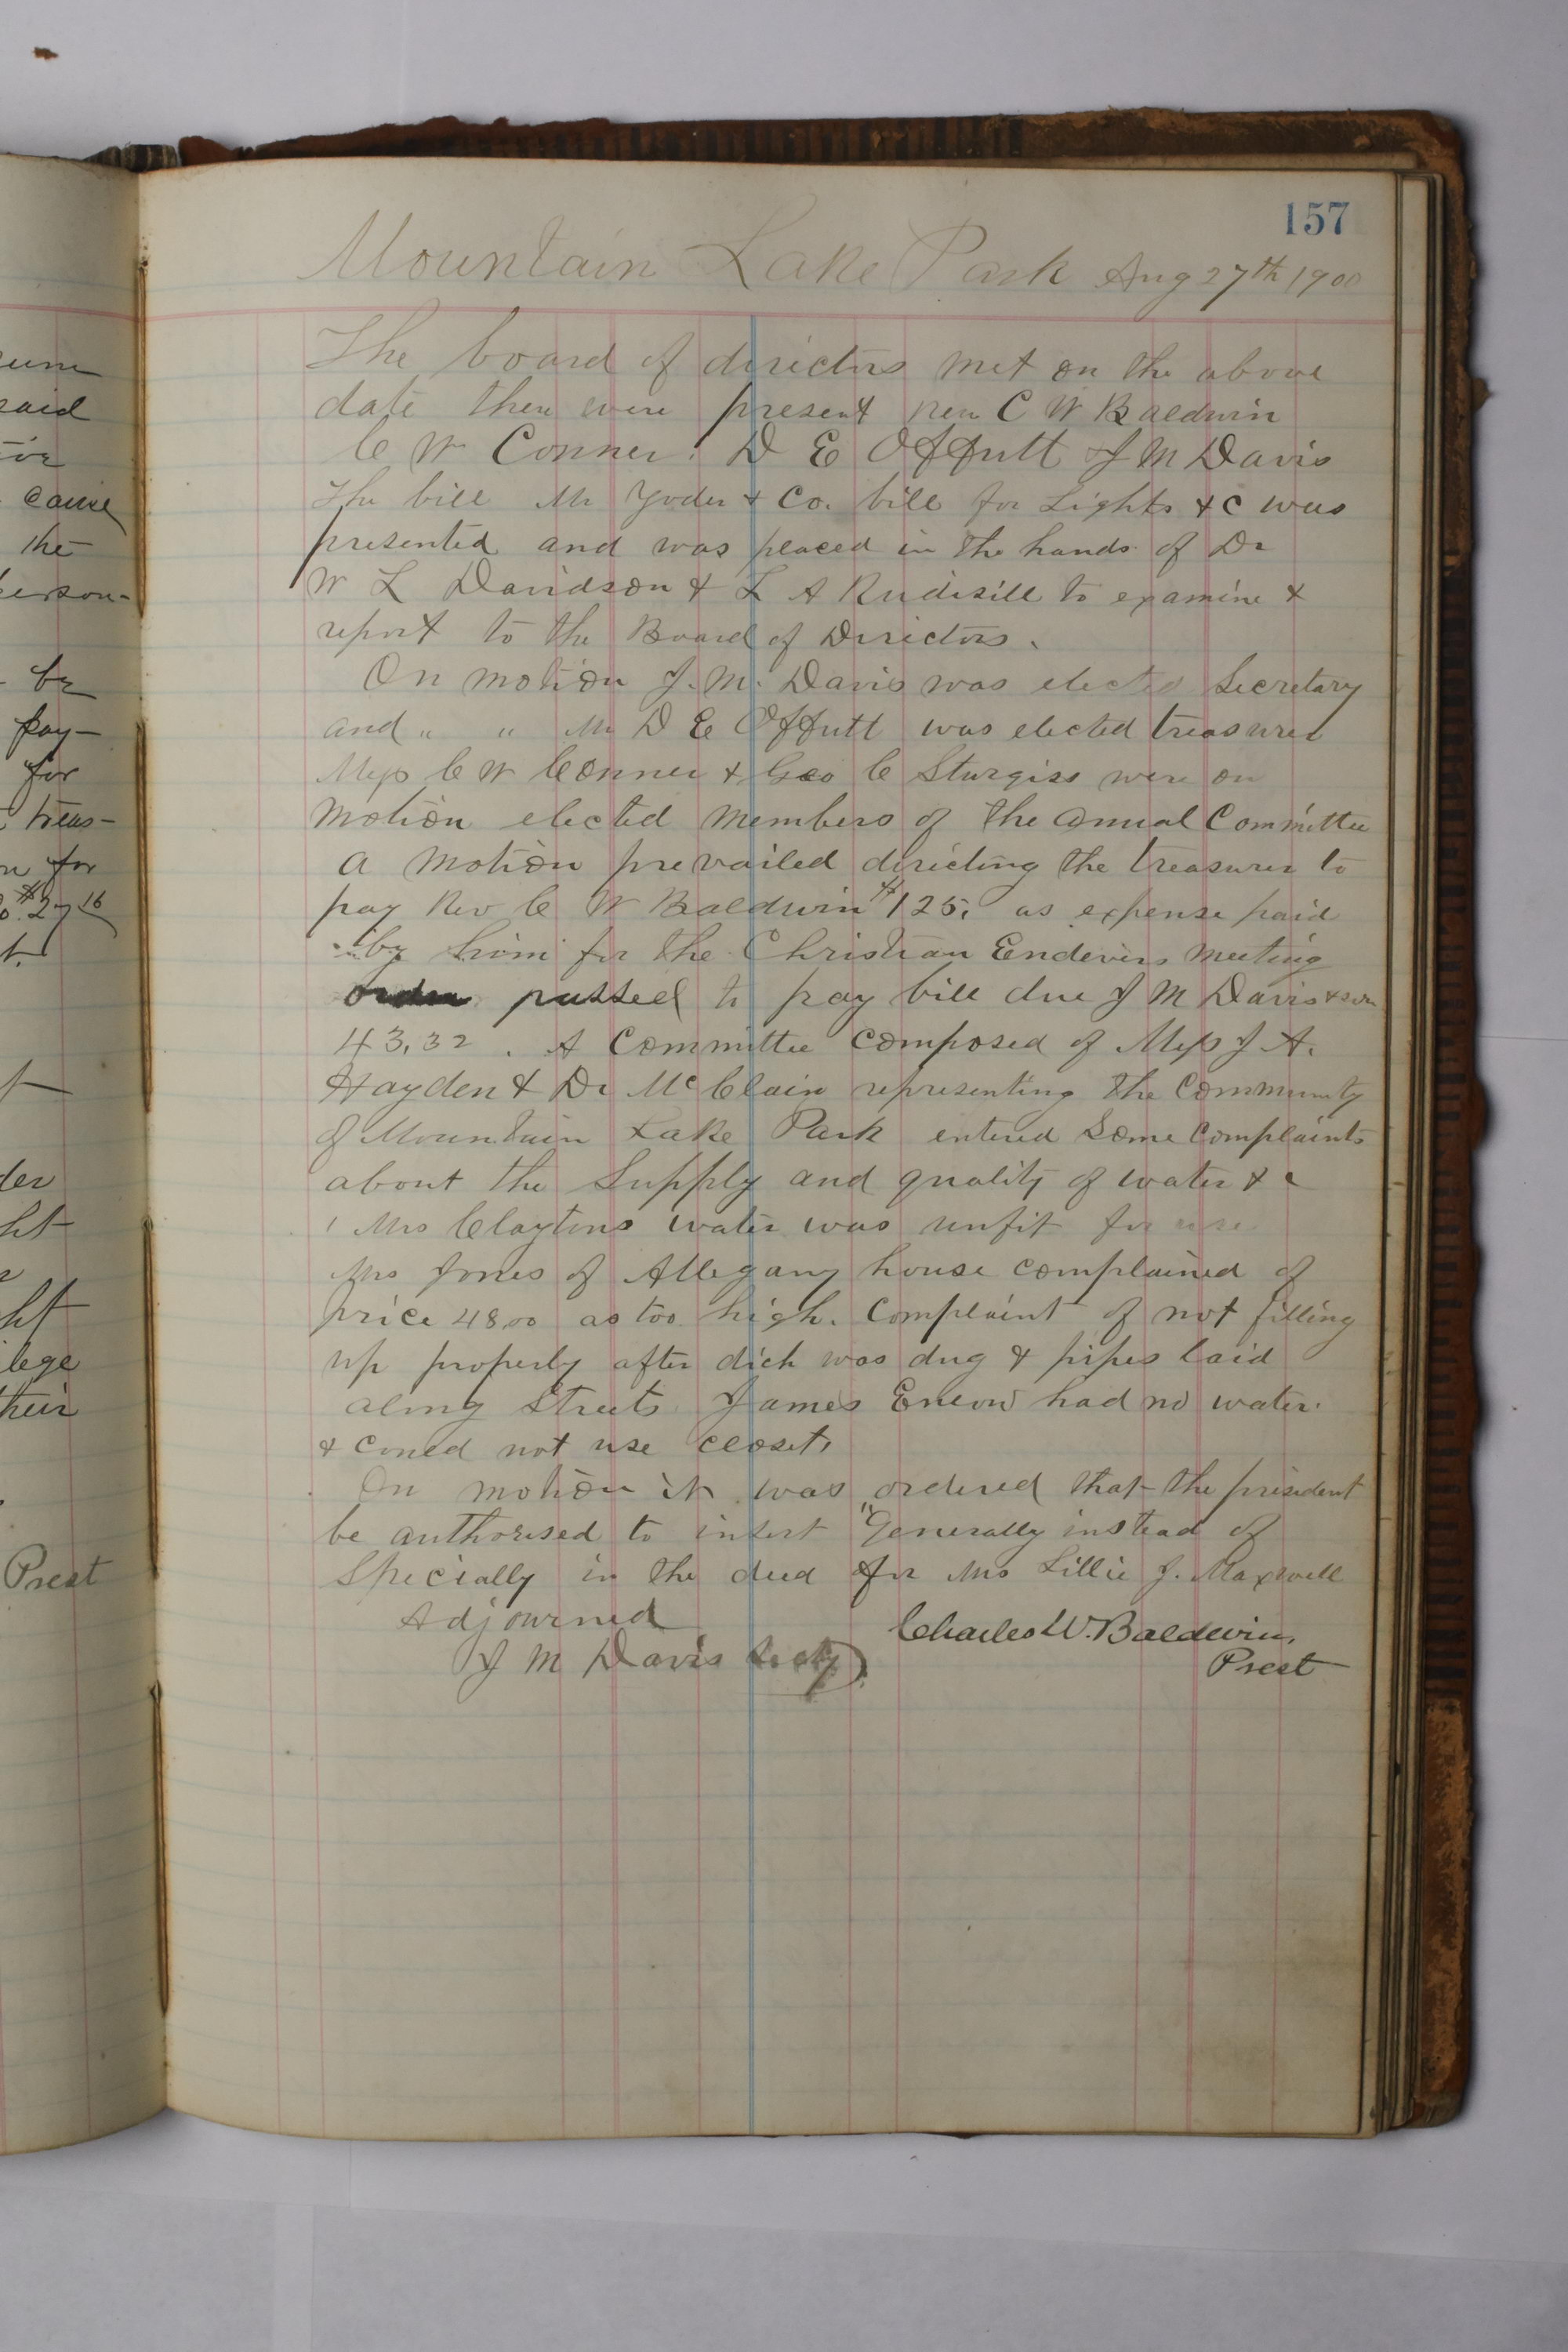 157
Mountain Lake Park Aug 27th 1900
The board of directors met on the above
date there were present Rev C W Baldwin
C W Conner. D E Offutt J M Davis
The bill Mr Yoder & Co. bill for Lights & c was
presented and was placed in the hands of Dr
W L Davidson & L A Rudisill to examine &
report to the Board of Directors.
On motion J. M. Davis was elected Secretary
and " " Mr D E Offutt was elected treasurer
Mess C W Conner & Geo C Sturgiss were on
motion elected members of the annual Committee
a motion prevailed directing the treasurer to
pay Rev C W Baldwin $125. as expense paid
by him for the Christian Endevers meeting
order passed to pay bill due J M Davis & son
43.32. A Committee composed of Mess J A.
Hayden & Dr McClain representing the Community
of Mountain Lake Park entered some complaints
about the supply and quality of water & c
Mrs Claytons water was unfit for use
Mrs Jones of Allegany house complained of
price 48.00 as too high. Complaint of not filling
up properly after dich was dug & pipes laid
along Streets James Enlow had no water.
& could not use closet,
On motion it was ordered that the president
be authorised to insert "Generally instead of
Specially in the deed for Mrs Lillie J. Maxwell
Adjourned
Charles W. Baldwin,
J M Davis Secty
Prest
said
cause
the
person-
by
pay-
for
treas-
for
$27 16
der
ht
ht
lege
their
Prest